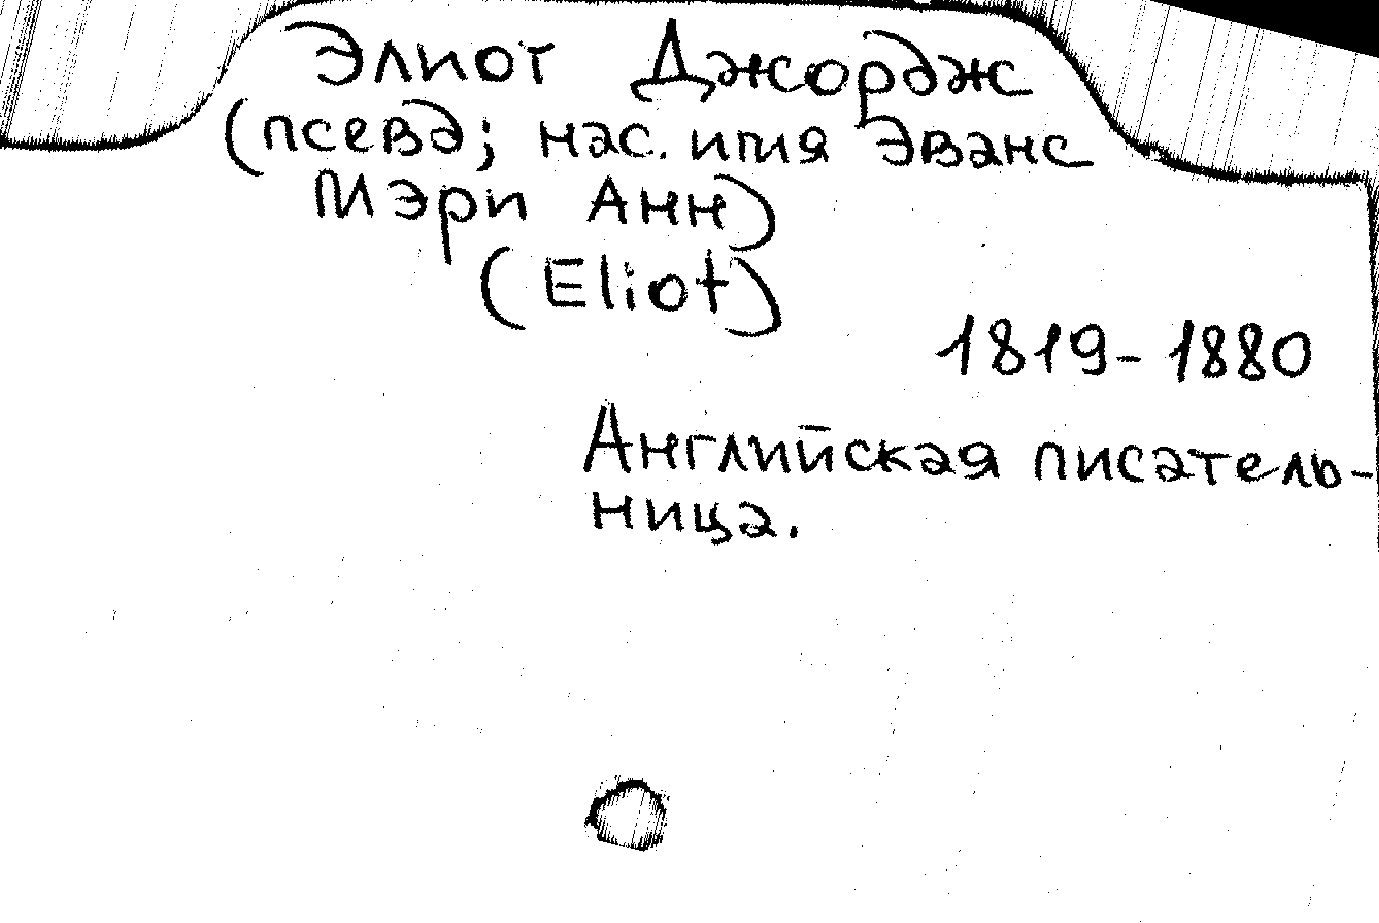 Элиот Джордж
(псевд; нас. имя Эванс
Мэри Анн)
(Eliot)
1819-1880
Английская писатель-
ница.